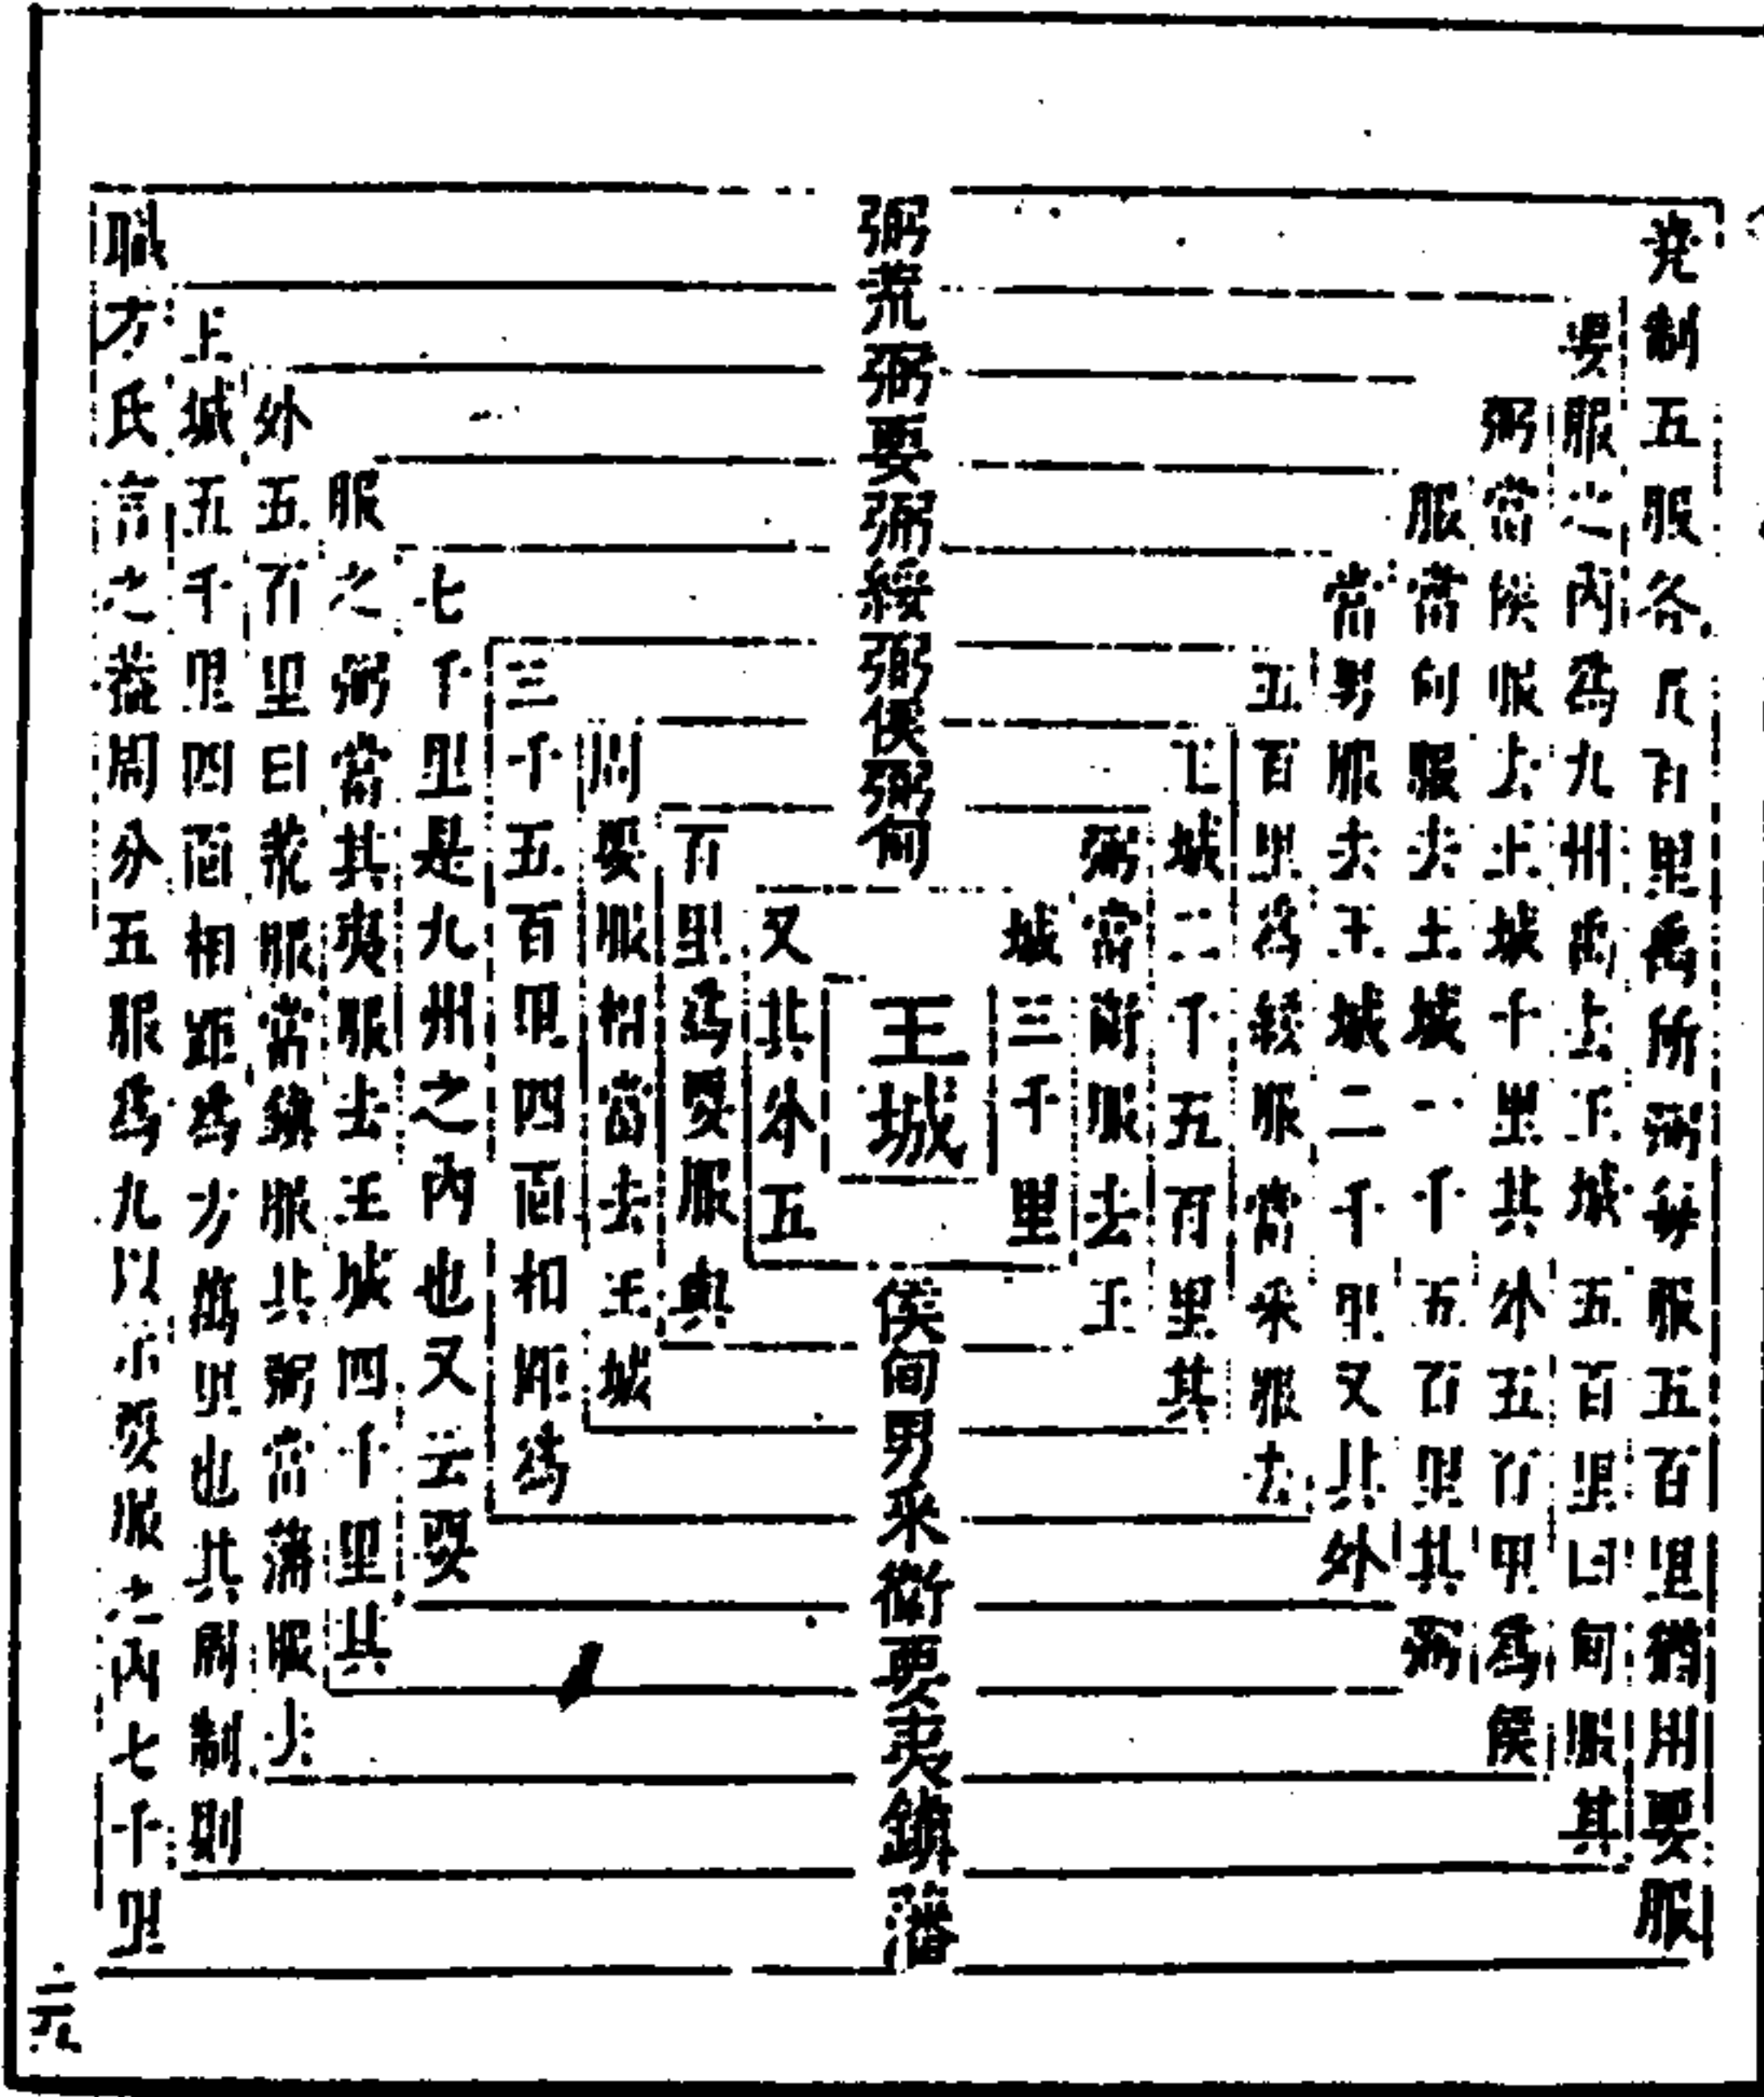 堯制五服各五百里禹所弼每服五百里猶用要服
要服之內爲九州禹去王城五百里曰甸服其
弼當侯服去王城千里其外五百里爲侯
服當甸服去王城一千五百里其弼
當男服去王城二千里又其外
五百里爲綏服當采服去
王城二千五百里其
弼當衛服去王
城三千里
弼荒弼要弼綏弼侯弼甸
王城
侯甸男采衛要夷鎮藩
又其外五
百里爲要服與
周要服相當去王城
三千五百里四面相距爲
七千里是九州之內也又云要
服之弼當其夷服去王城四千里其
外五百里曰荒服當鎮服其弼當藩服去
王城五千里四面相距爲方萬里也其周制則
職方氏言之蓋周分五服爲九以示要服之內七千里